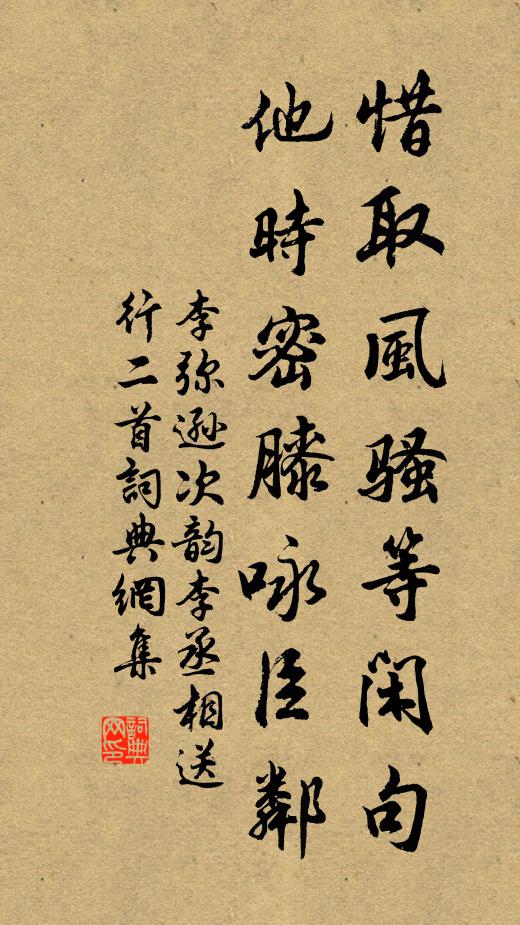 惜取風騷等閑句
他時密膝咏臣鄰
李弥遜次韵李丞相送
行二首詞典網集
詞典网印